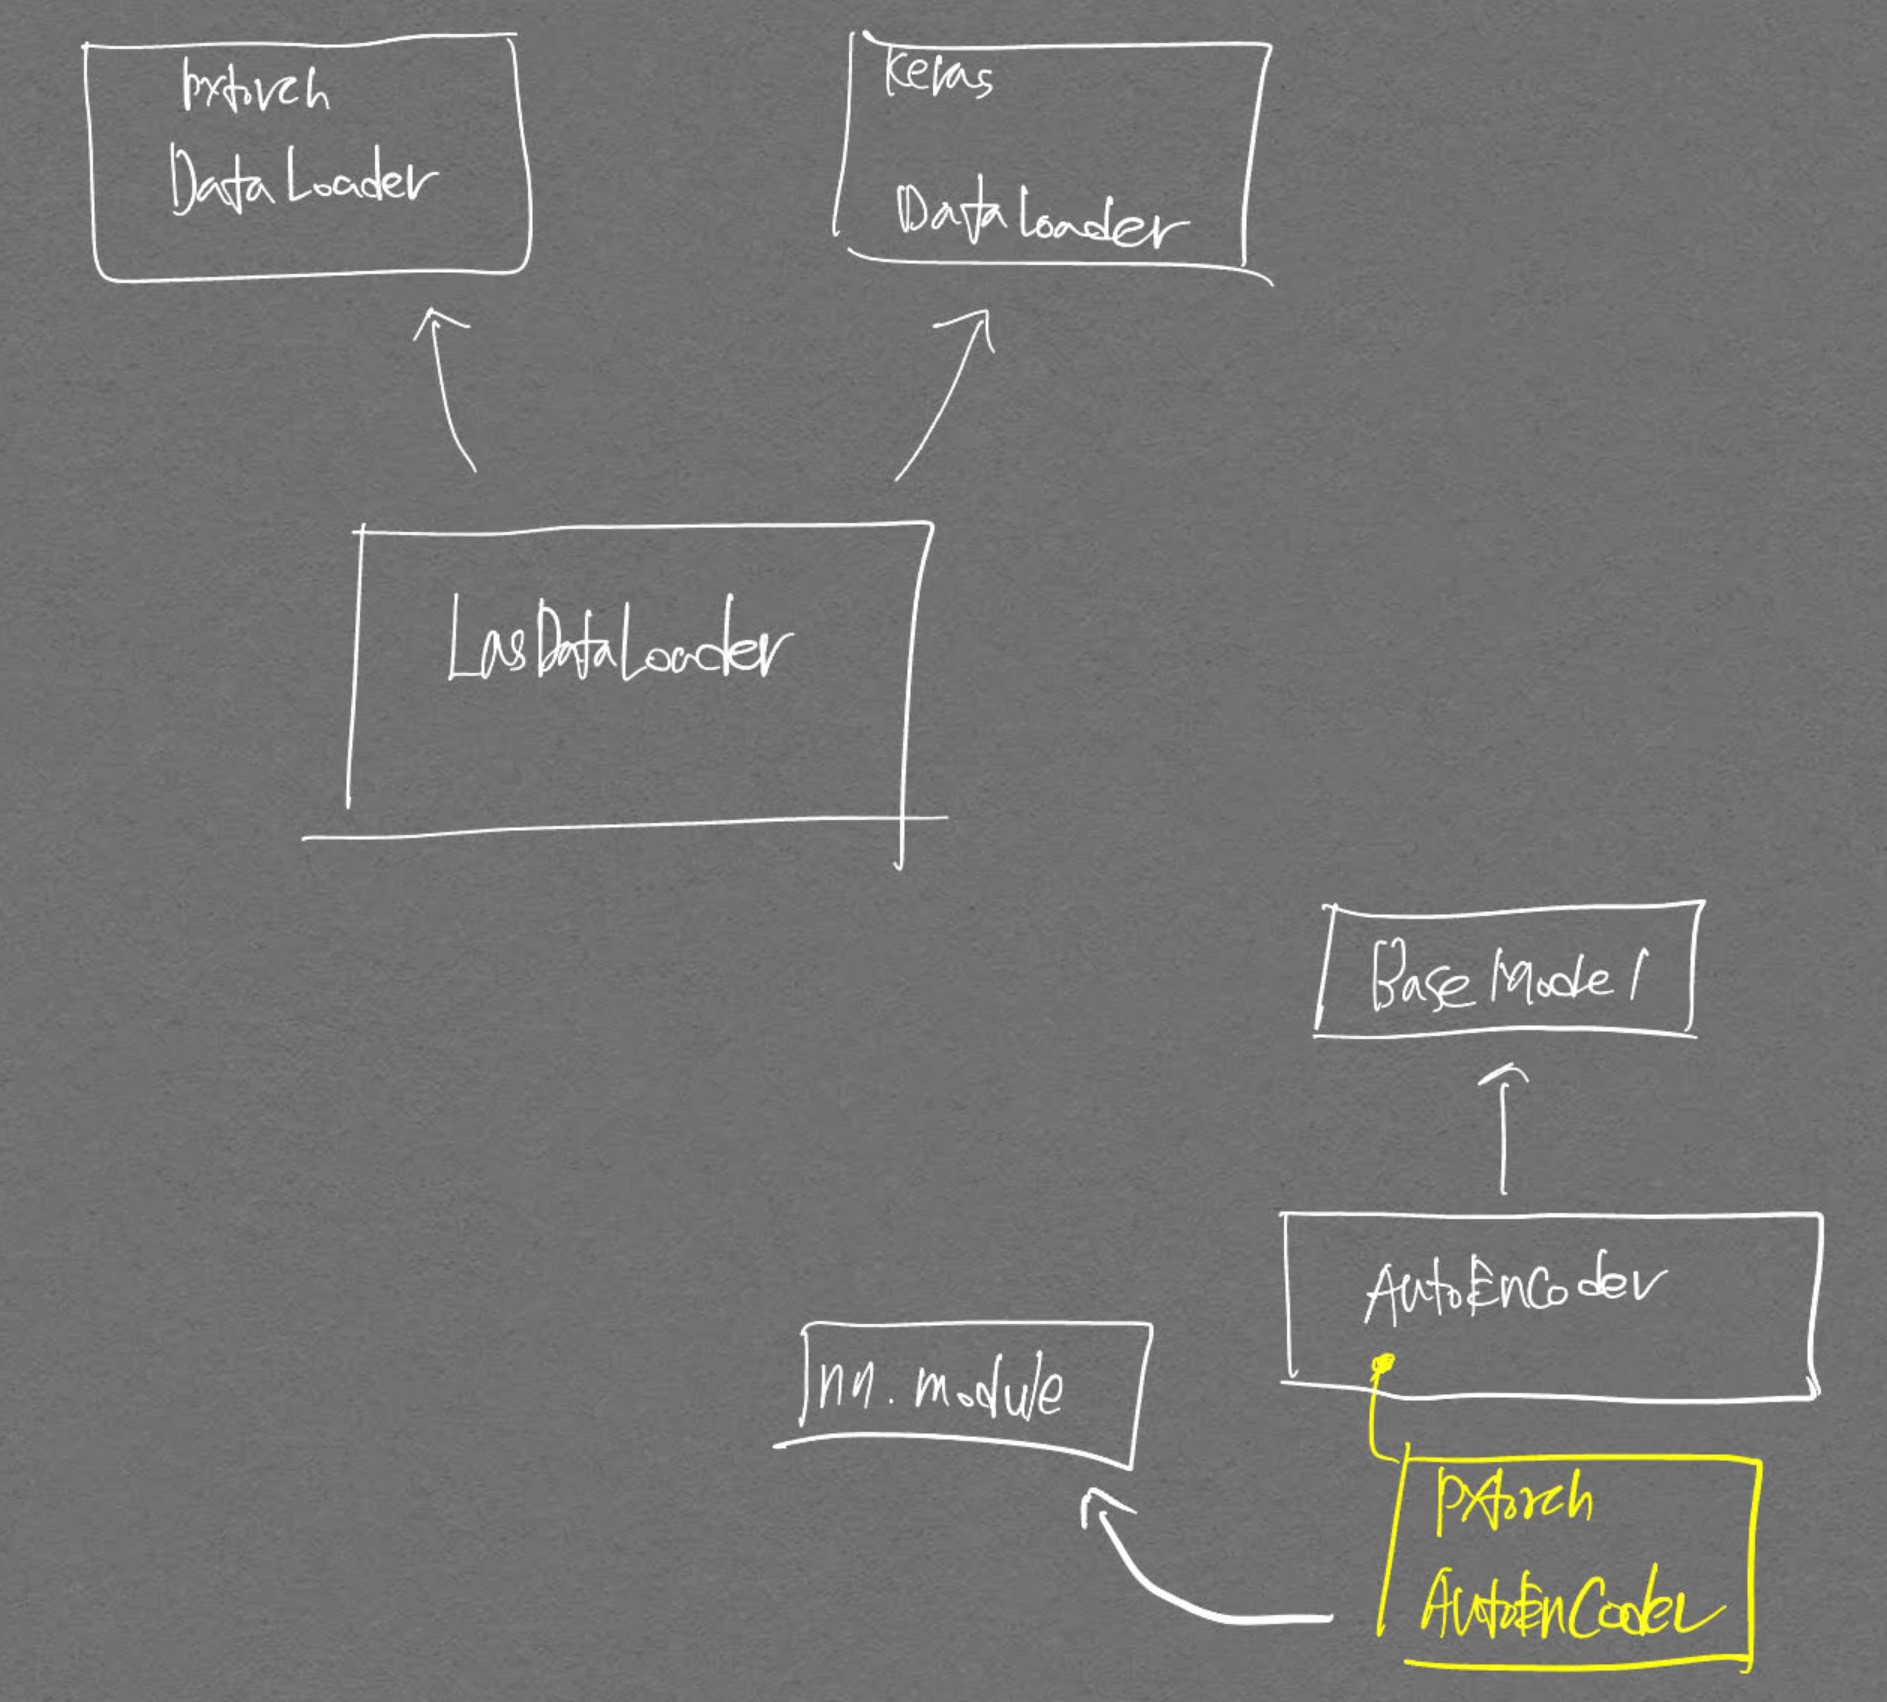 pytorch
DataLoader
Keras
DataLoader
LasDataLoader
BaseModel
AutoEncoder
nn.module
pytorch
AutoEncoder